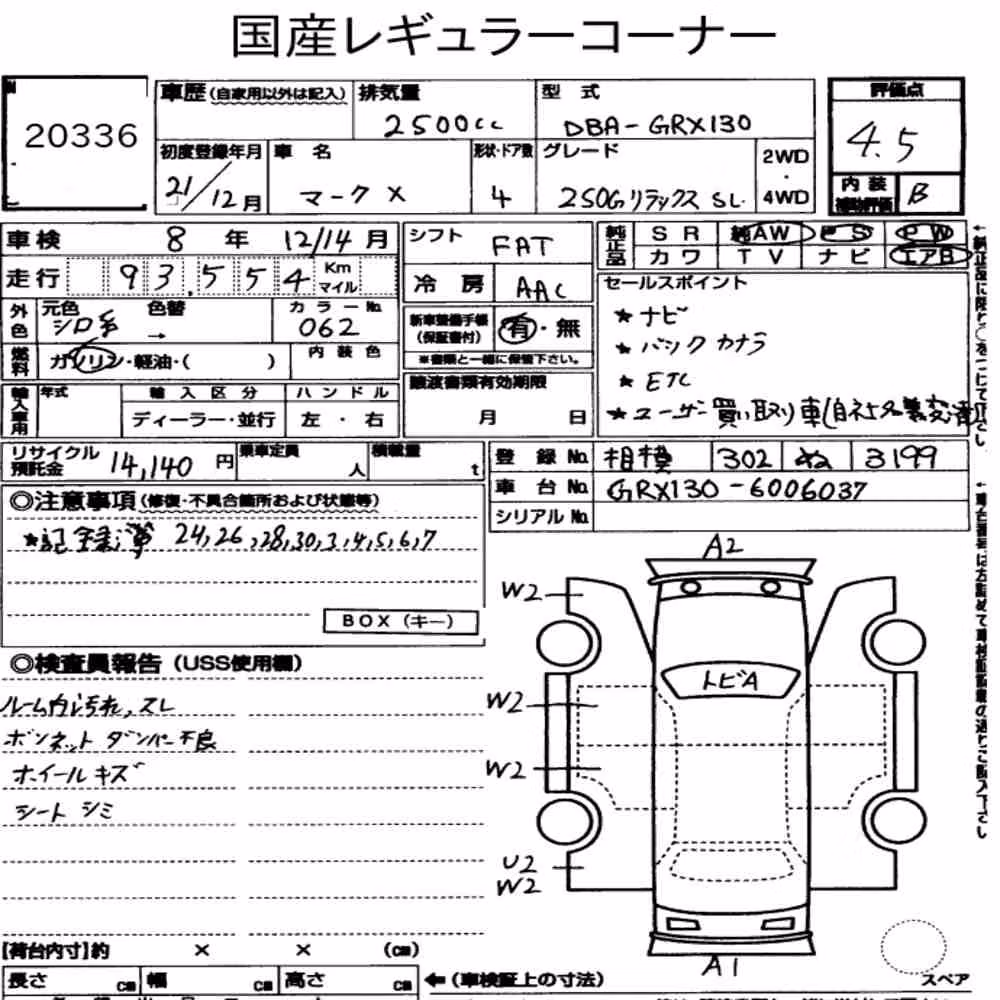 国産レギュラーコーナー
20336
車歴(自家用以外は記入)
排気量
2500cc
型式
DBA-GRX130
評価点
4.5
初度登録年月
21/12月
車名
マークX
形状・ドア数
4
グレード
250GリラックスSL
2WD
・
4WD
内装
補助評価
B
車検 8年 12/14月
走行 93,554 Km マイル
外色 元色 シロ系 色替 →
カラーNo. 062
燃料 ガソリン・軽油・( )
内装色
輸入車用 年式
輸入区分 ディーラー・並行
ハンドル 左・右
シフト FAT
冷房 AAC
新車整備手帳
(保証書付)
有・無
※書類と一緒に保管下さい。
譲渡書類有効期限
月 日
純正品 SR 純AW PS PW
カワ TV ナビ エアB
セールスポイント
★ナビ
★バックカメラ
★ETC
★ユーザー買い取り車(自社名義変済
リサイクル
預託金
14,140円
乗車定員 人
積載量 t
登録No. 相模 302 ぬ 3199
車台No. GRX130-6006037
シリアルNo.
◎注意事項(修復・不具合箇所および状態等)
★記録簿 24,26,28,30,3,4,5,6,7
BOX(キー)
◎検査員報告(USS使用欄)
ルーム内汚れ,スレ
ボンネットダンパー不良
ホイールキズ
シートシミ
A2
W2
トビA
W2
W2
U2
W2
A1
スペア
【荷台内寸】約 × × (cm)
長さ cm 幅 cm 高さ cm
←(車検証上の寸法)